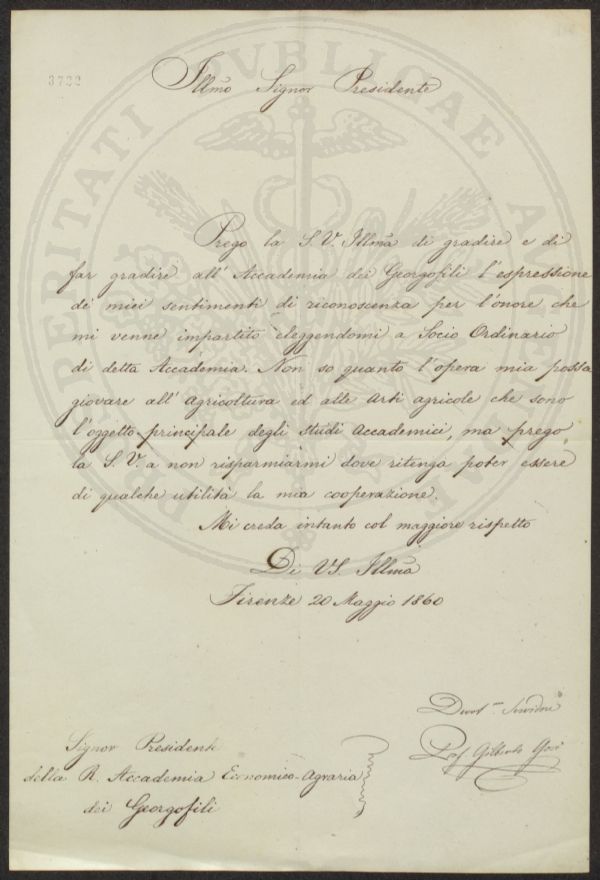 PROSPERITATI PVBLICAE AVGENDAE
3722
Illmo Signor Presidente
Prego la S. V. Illma di gradire e di
far gradire all' Accademia dei Georgofili l'espressione
dei miei sentimenti di riconoscenza per l'onore che
mi venne impartito eleggendomi a Socio Ordinario
di detta Accademia. Non so quanto l'opera mia possa
giovare all' Agricoltura ed alle Arti agricole che sono
l'oggetto principale degli studi Accademici, ma prego
la S. V. a non risparmiarmi dove ritenga poter essere
di qualche utilità la mia cooperazione.
Mi creda intanto col maggiore rispetto
Di VS. Illma
Firenze 20 Maggio 1860
Devot.mo Servidore
Prof Gilberto Govi
Signor Presidente
della R. Accademia Economico-Agraria
dei Georgofili